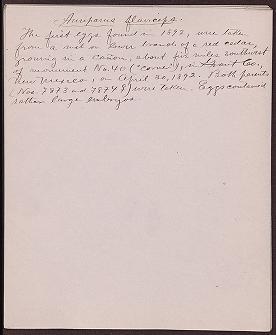 Auriparus flaviceps.
The first eggs found in 1892, were taken
from a nest on lower branch of a red cedar,
growing in a cañon, about five miles southwest
of monument No. 40 ("corner"), in Grant Co.,
New Mexico, on April 30, 1892. Both parents
(Nos. 7873 and 7874 ♀) were taken. Eggs contained
rather large embryos.